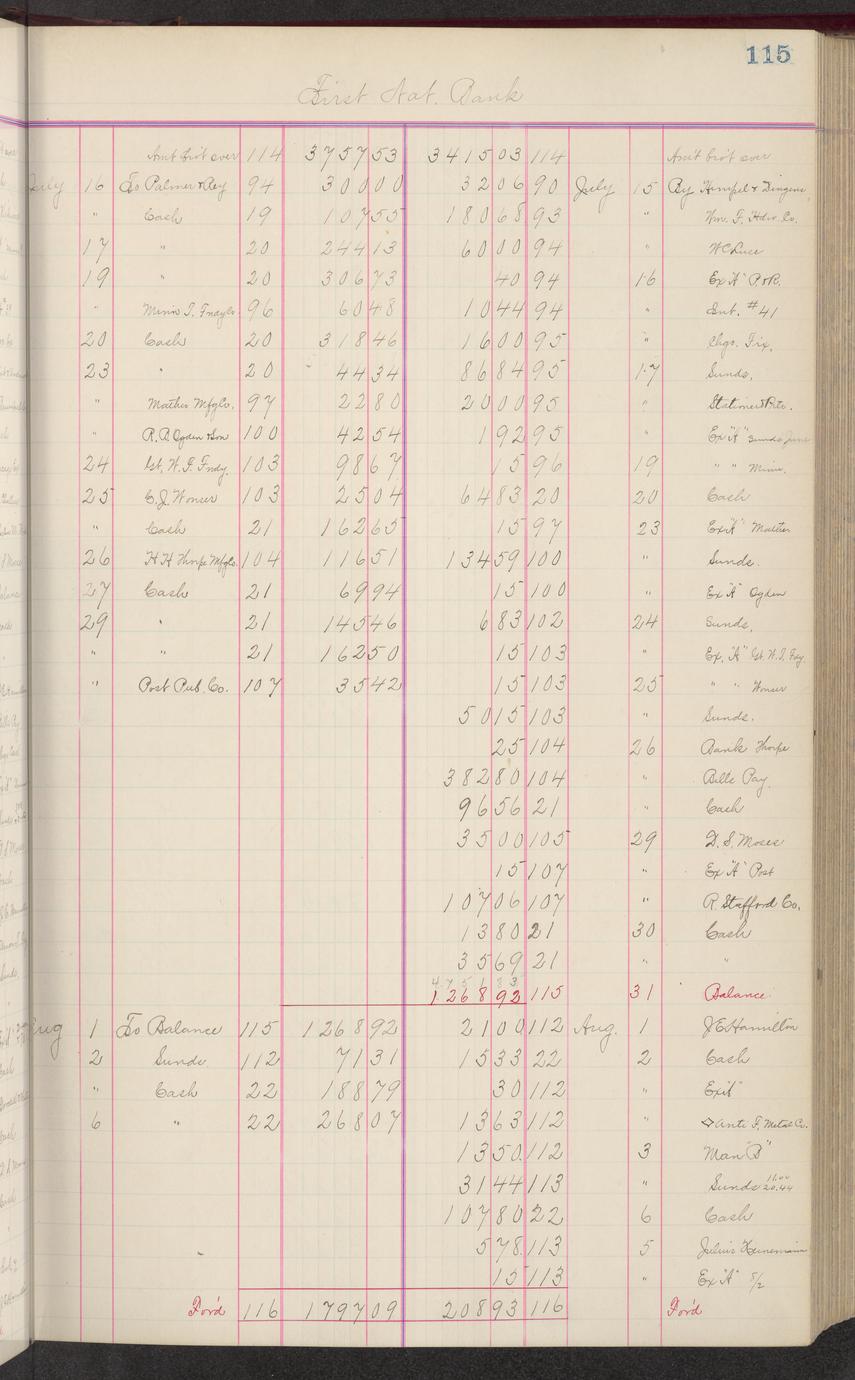 115
First Nat. Bank
Am't bro't over 114 3757 53 3415 03 114 Am't bro't over
July 16 To Palmer & Rey 94 300 00 32 06 90 July 15 By Hempel &
" Cash 19 107 55 180 68 93 " Wm. F. Hdw. Co.
17 " 20 244 13 60 00 94 " W C Luce
19 " 20 306 73 40 94 16 Ex "A" P & R.
" Minn. T. Fndy Co. 96 60 48 10 44 94 " Int. #41
20 Cash 20 318 46 16 00 95 " Chgs. Fix.
23 " 20 44 34 86 84 95 17 Sunds.
" Mather Mfg Co. 97 22 80 20 00 95 "
" R. A. Ogden & Son 100 42 54 1 92 95 " Ex "A" Sunds June
24 Gt. W. T. Fndy. 103 98 67 15 96 19 " " Minn.
25 C. J. Wonser 103 25 04 64 83 20 20 Cash
" Cash 21 162 65 15 97 23 Ex "A" Mather
26 H H Thorpe Mfg Co. 104 116 51 134 59 100 " Sunds.
27 Cash 21 69 94 15 100 " Ex "A" Ogden
29 " 21 145 46 6 83 102 24 Sunds.
" " 21 162 50 15 103 " Ex. "A" Gt. W. T. Fdy
" Post Pub. Co. 107 35 42 15 103 25 " " Wonser
50 15 103 " Sunds.
25 104 26 Bank Thorpe
382 80 104 " Bills Pay.
96 56 21 " Cash
35 00 105 29 D. S. Moses
15 107 " Ex "A" Post
107 06 107 " R. Stafford Co.
13 80 21 30 Cash
35 69 21 " "
4751 83
1268 92 115 31 Balance
Aug 1 To Balance 115 1268 92 21 00 112 Aug. 1 J E Hamilton
2 Sunds 112 71 31 15 33 22 2 Cash
" Cash 22 188 79 30 112 " Ex "A"
6 " 22 268 07 13 63 112 " F. Metal Co.
13 50 112 3 Man "B"
31 44 113 " Sunds 11.00 20.44
107 80 22 6 Cash
5 78 113 5 Julius Heinemann
15 113 " Ex "A" 8/2
For'd 116 1797 09 208 93 116 For'd